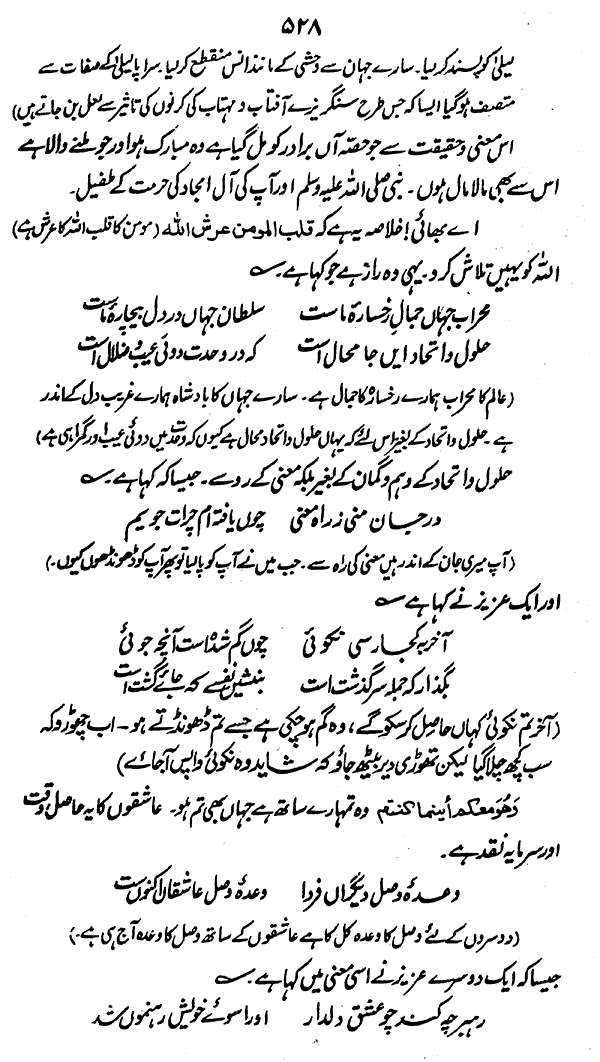 ۵۲۸
لیلیٰ کو پسند کر لیا۔ سارے جہان سے وحشی کے مانند انس منقطع کر لیا۔ سراپا لیلیٰ کے صفات سے
متصف ہو گیا ایسا کہ جس طرح سنگریزے آفتاب و مہتاب کی کرنوں کی تاثیر سے لعل بن جاتے ہیں)
اس معنی و حقیقت سے جو حصّہ آں برادر کو مل گیا ہے وہ مبارک ہو اور جو ملنے والا ہے
اس سے بھی مالا مال ہوں۔ نبی صلی اللہ علیہ وسلم اور آپ کی آل امجاد کی حرمت کے طفیل۔
اے بھائی! خلاصہ یہ ہے کہ قلب المومن عرش الله (مومن کا قلب اللہ کا عرش ہے)
اللہ کو یہیں تلاش کرو۔ یہی وہ راز ہے جو کہا ہے۔
محراب جہاں جمالِ رخسارۂ ماست سلطان جہاں در دل بیچارۂ ماست
حلول و اتحاد ایں جا محال است کہ در وحدت دوئی عیب و ضلال است
(عالم کا محراب ہمارے رخسارۂ کا جمال ہے۔ سارے جہاں کا بادشاہ ہمارے غریب دل کے اندر
ہے۔ حلول و اتحاد کے بغیر اس لئے کہ یہاں حلول و اتحاد محال ہے کیوں کہ وحدت میں دوئی عیب اور گمراہی ہے)
حلول و اتحاد کے وہم و گمان کے بغیر بلکہ معنی کے رو سے۔ جیسا کہ کہا ہے۔
در جان منی ز راہ معنی چوں یافتہ ام چرات جویم
(آپ میری جان کے اندر ہیں معنی کی راہ سے۔ جب میں نے آپ کو پالیا تو پھر آپ کو ڈھونڈھوں کیوں۔)
اور ایک عزیز نے کہا ہے
آخر بہ کجا رسی نکوئی چوں گم شدٔہ است آنچہ جوئی
بگذار کہ جملہ سرگذشت است بنشیں نفسے کہ جائے گشت است
(آخر تم نکوئی کہاں حاصل کر سکو گے، وہ گم ہو چکی ہے جسے تم ڈھونڈتے ہو۔ اب چھوڑو کہ
سب کچھ چلا گیا لیکن تھوڑی دیر بیٹھ جاؤ کہ شاید وہ نکوئی واپس آجائے)
وَهُوَ معكم أينما كنتم وہ تمہارے ساتھ ہے جہاں بھی تم ہو۔ عاشقوں کا یہ حاصل وقت
اور سرمایہ نقد ہے۔
وعدۂ وصل دیگراں فردا وعدۂ وصل عاشقاں اکنوں است
(دوسروں کے لئے وصل کا وعدہ کل کا ہے عاشقوں کے ساتھ وصل کا وعدہ آج ہی ہے۔)
جیسا کہ ایک دوسرے عزیز نے اسی معنی میں کہا ہے۔
رہبر چہ کند چو عشق دلدار او را سوئے خویش رہنموں شد